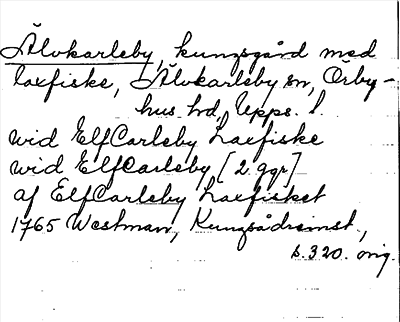 Älvkarleby, kungsgård med
laxfiske, Älvkarleby sn, Örby-
hus hd, Upps. l.
wid ElfCarleby Laxfiske
wid ElfCarleby [2 ggr]
af ElfCarleby Laxfisket
1765 Westman, Kungsådrainst.,
s. 320. orig.